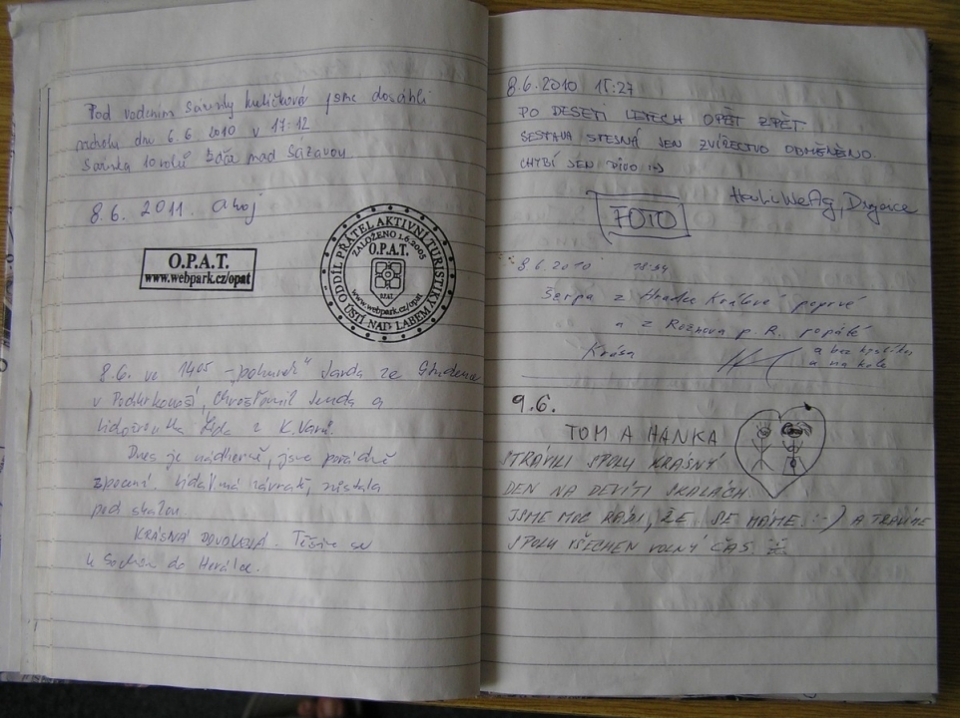 Pod vedením Sáринky kuličkové jsme dosáhli
vrcholu dne 6.6 2010 v 17:12
Sárinka 10 roků Žďár nad Sázavou
8.6. 2011. ahoj
O.P.A.T.
www.webpark.cz/opat
ODDÍL PŘÁTEL AKTIVNÍ TURISTIKY ÚSTÍ NAD LABEM
ZALOŽENO 1.6.2005
O.P.A.T.
www.webpark.cz/opat
8.6. ve 1405 Jarda ze
v Podkrkonoší, a
Lída z K.Varů.
Dnes je nádherně, jsme pořádně
zpocení. Lída má závrať, zůstala
pod skalou.
KRÁSNÁ DOVOLENÁ. Těšíme se
do
8.6.2010 15:27
PO DESETI LETECH OPĚT ZPĚT.
SESTAVA STEJNÁ JEN ZVÍŘECTVO OBMĚNĚNO.
CHYBÍ JEN PIVO :-)
FOTO
8.6.2010 18:54
Šerpa z Hradce Králové poprvé
a z Rožnova p. R. popáté
Krása
a bez
a na kole
9.6.
TOM A HANKA
STRÁVILI SPOLU KRÁSNÝ
DEN NA DEVÍTI SKALÁCH
JSME MOC RÁDI, ŽE SE MÁME :-) A TRÁVÍME
SPOLU VŠECHEN VOLNÝ ČAS